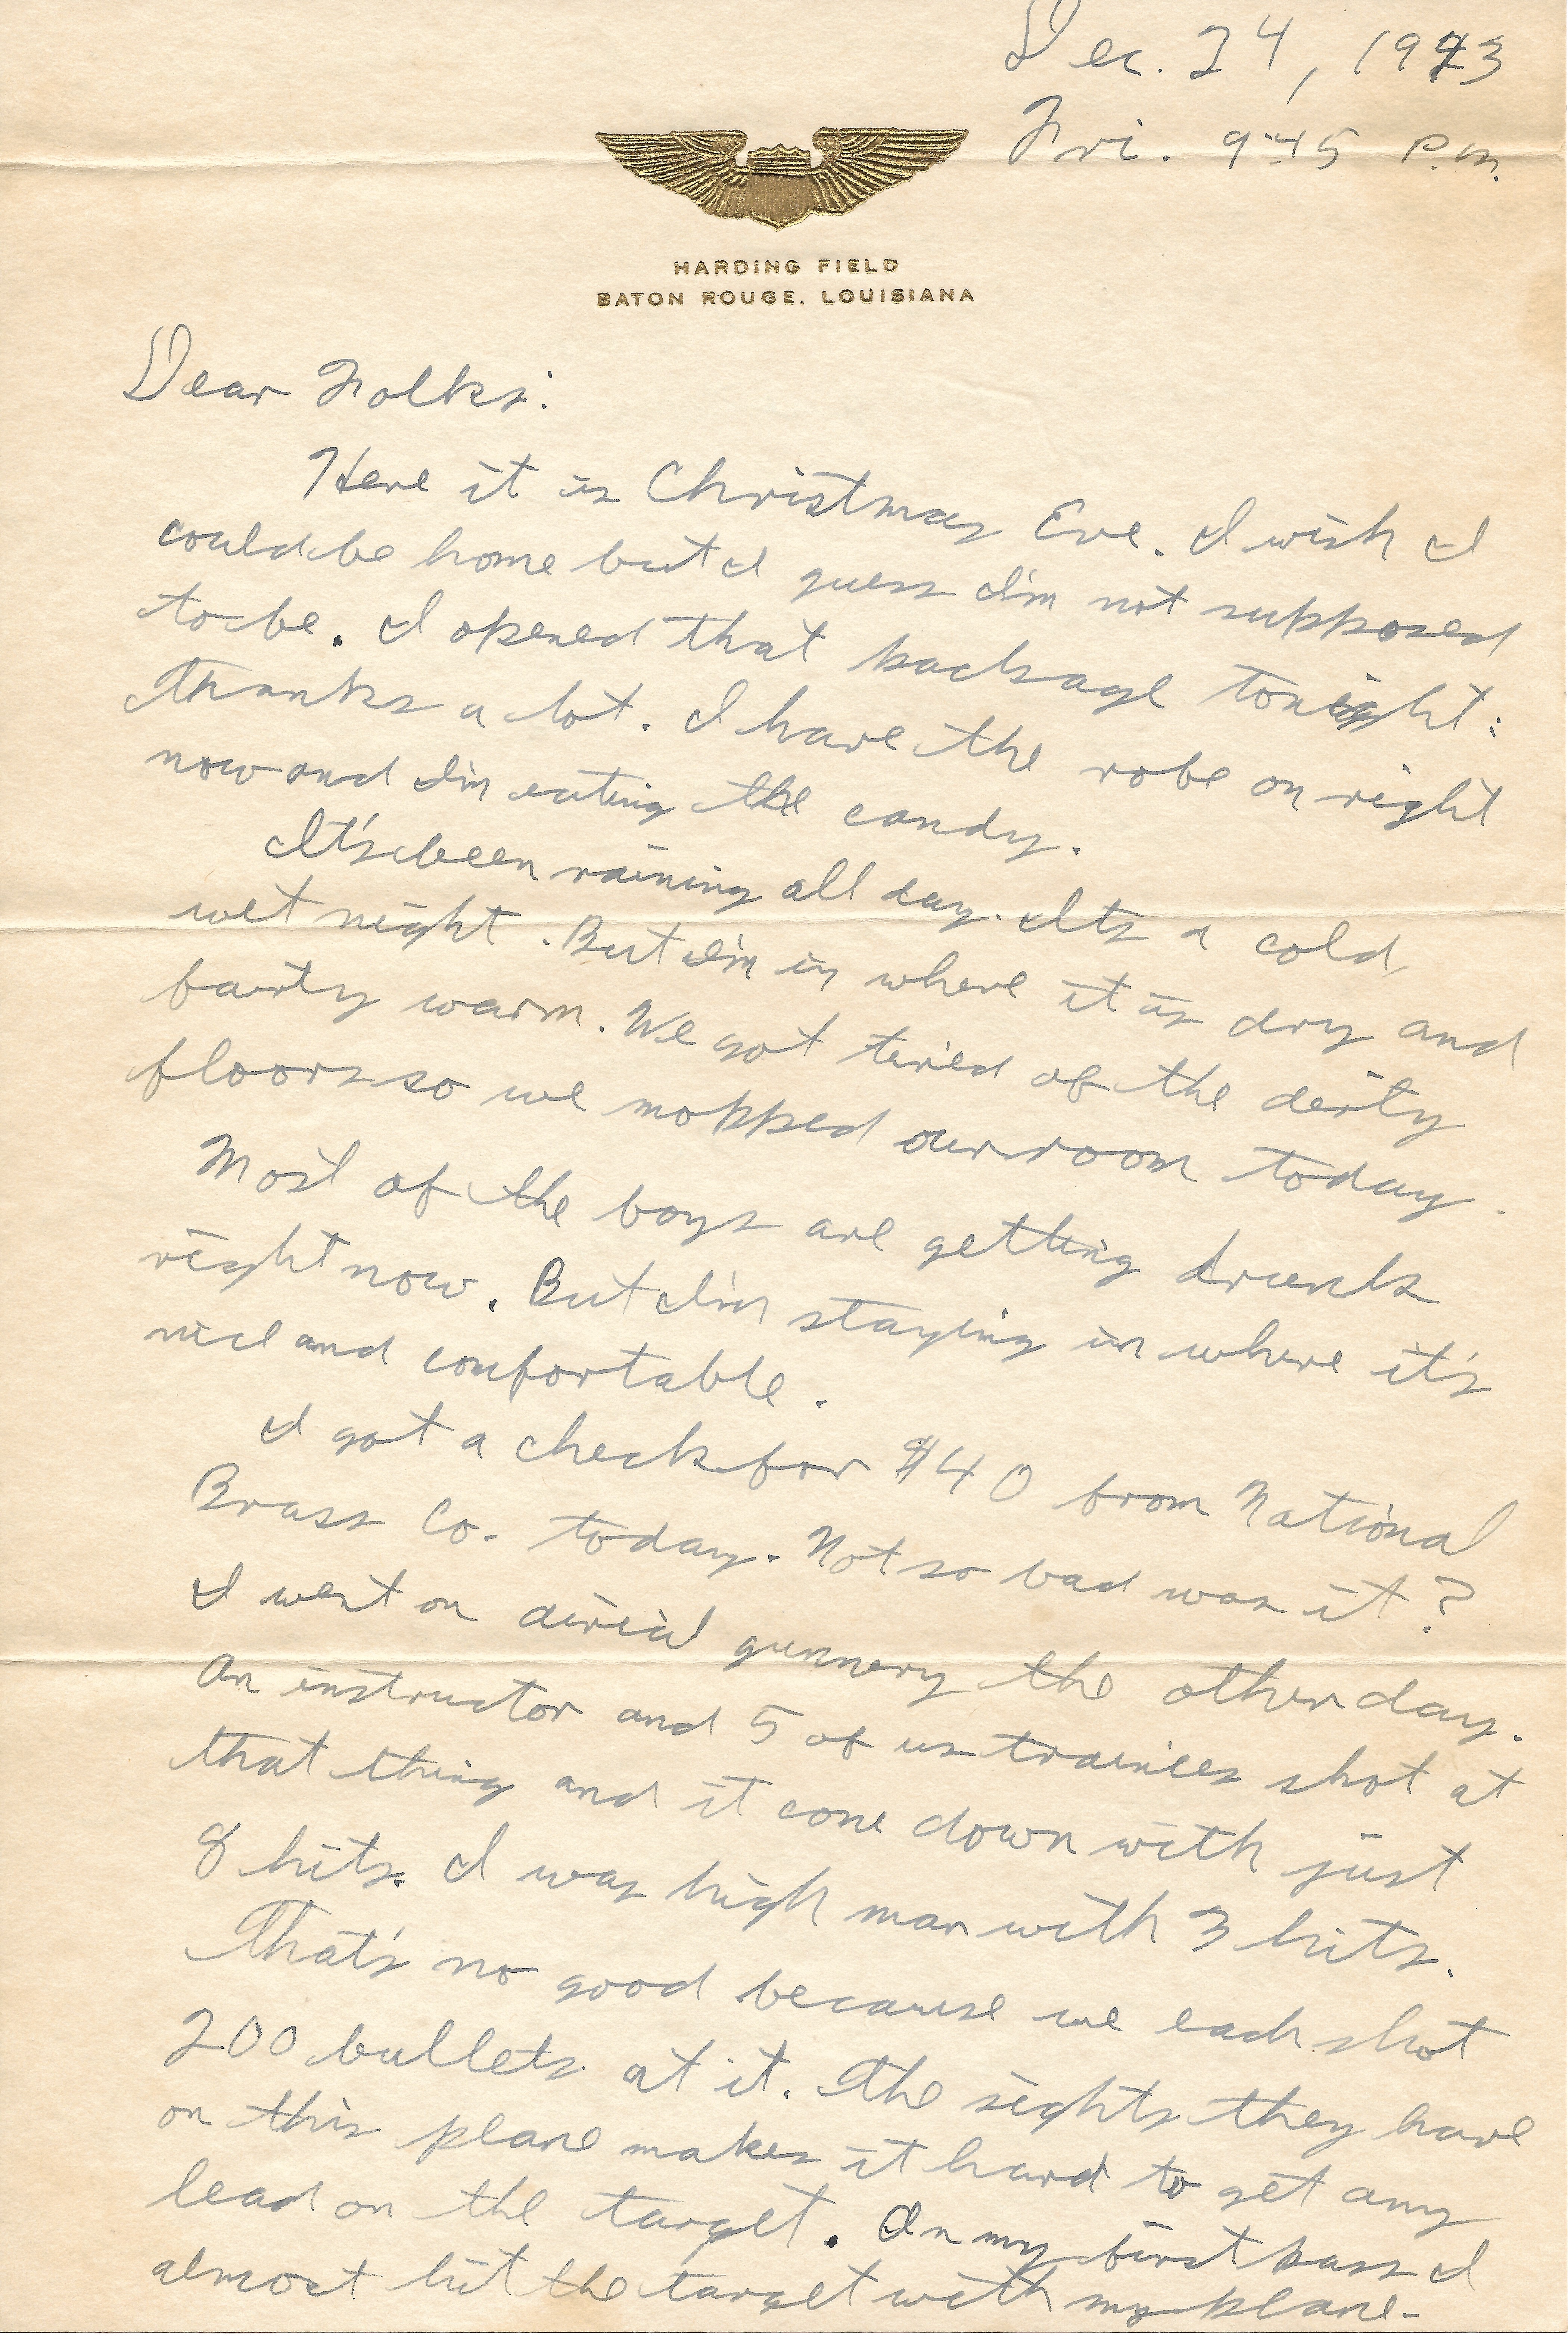 Dec. 24, 1943
Fri. 9:45 P.M.
HARDING FIELD
BATON ROUGE, LOUISIANA
Dear Folks:
Here it is Christmas Eve. I wish I
could be home but I guess I'm not supposed
to be. I opened that package tonight:
thanks a lot. I have the robe on right
now and I'm eating the candy.
It's been raining all day. Its a cold,
wet night. But I'm in where it is dry and
fairly warm. We got tired of the dirty
floors so we mopped our room today.
Most of the boys are getting drunk
right now. But I'm staying in where it's
nice and comfortable.
I got a check for $40 from National
Brass Co. today. Not so bad was it?
I went on airial gunnery the other day.
An instructor and 5 of us trainees shot at
that thing and it come down with just
8 hits. I was high man with 3 hits.
That's no good because we each shot
200 bullets at it. The sights they have
on this plane makes it hard to get any
lead on the target. On my first pass I
almost hit the target with my plane.